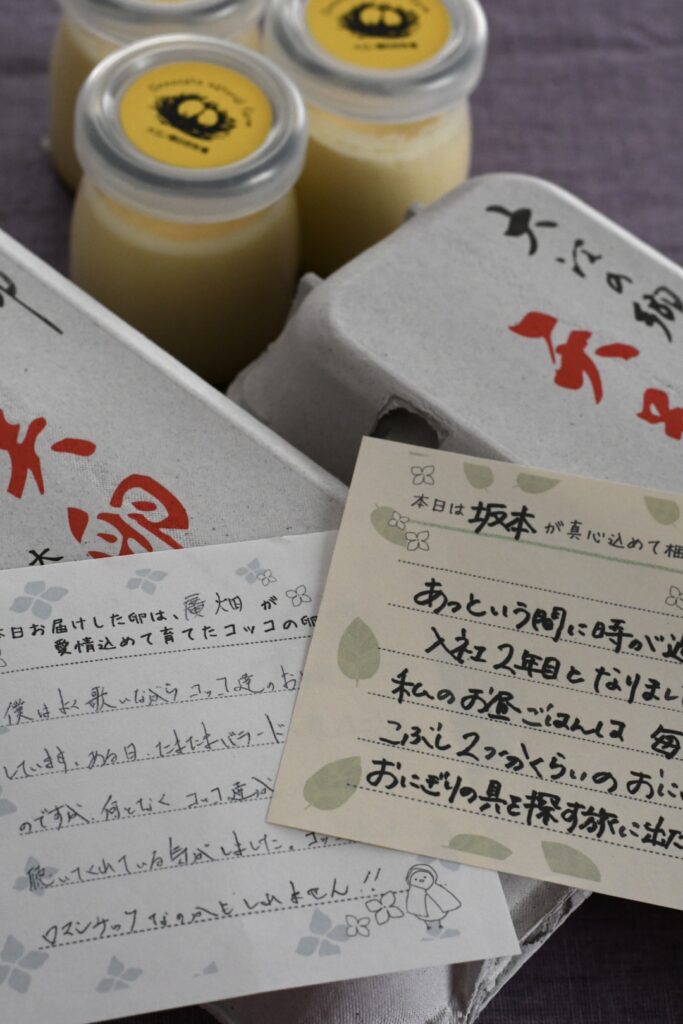 Oenosato natural farm
大江ノ郷自然牧場
大江の郷
天
卵
本日お届けした卵は、 畑 が
愛情込めて育てたコッコの卵
僕はよく歌いながら コッコ達のお
しています。ある日、たまたまバラード
のですが、何となく コッコ達が
聴いてくれている気がしました。コッ
ロマンチックなのかもしれません!!
本日は 坂本 が真心込めて
あっという間に時が
入社2年目となりまし
私のお昼ごはんは 毎
こぶし2つ分くらいのおに
おにぎりの具を探す旅に出た